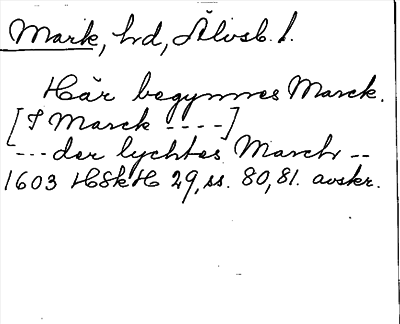 Mark, hd, Älvsb. l.
Här begynnes Marck.
[I Marck ----]
--- der lychtes March --
1603 HSkH 29, ss. 80, 81. avskr.